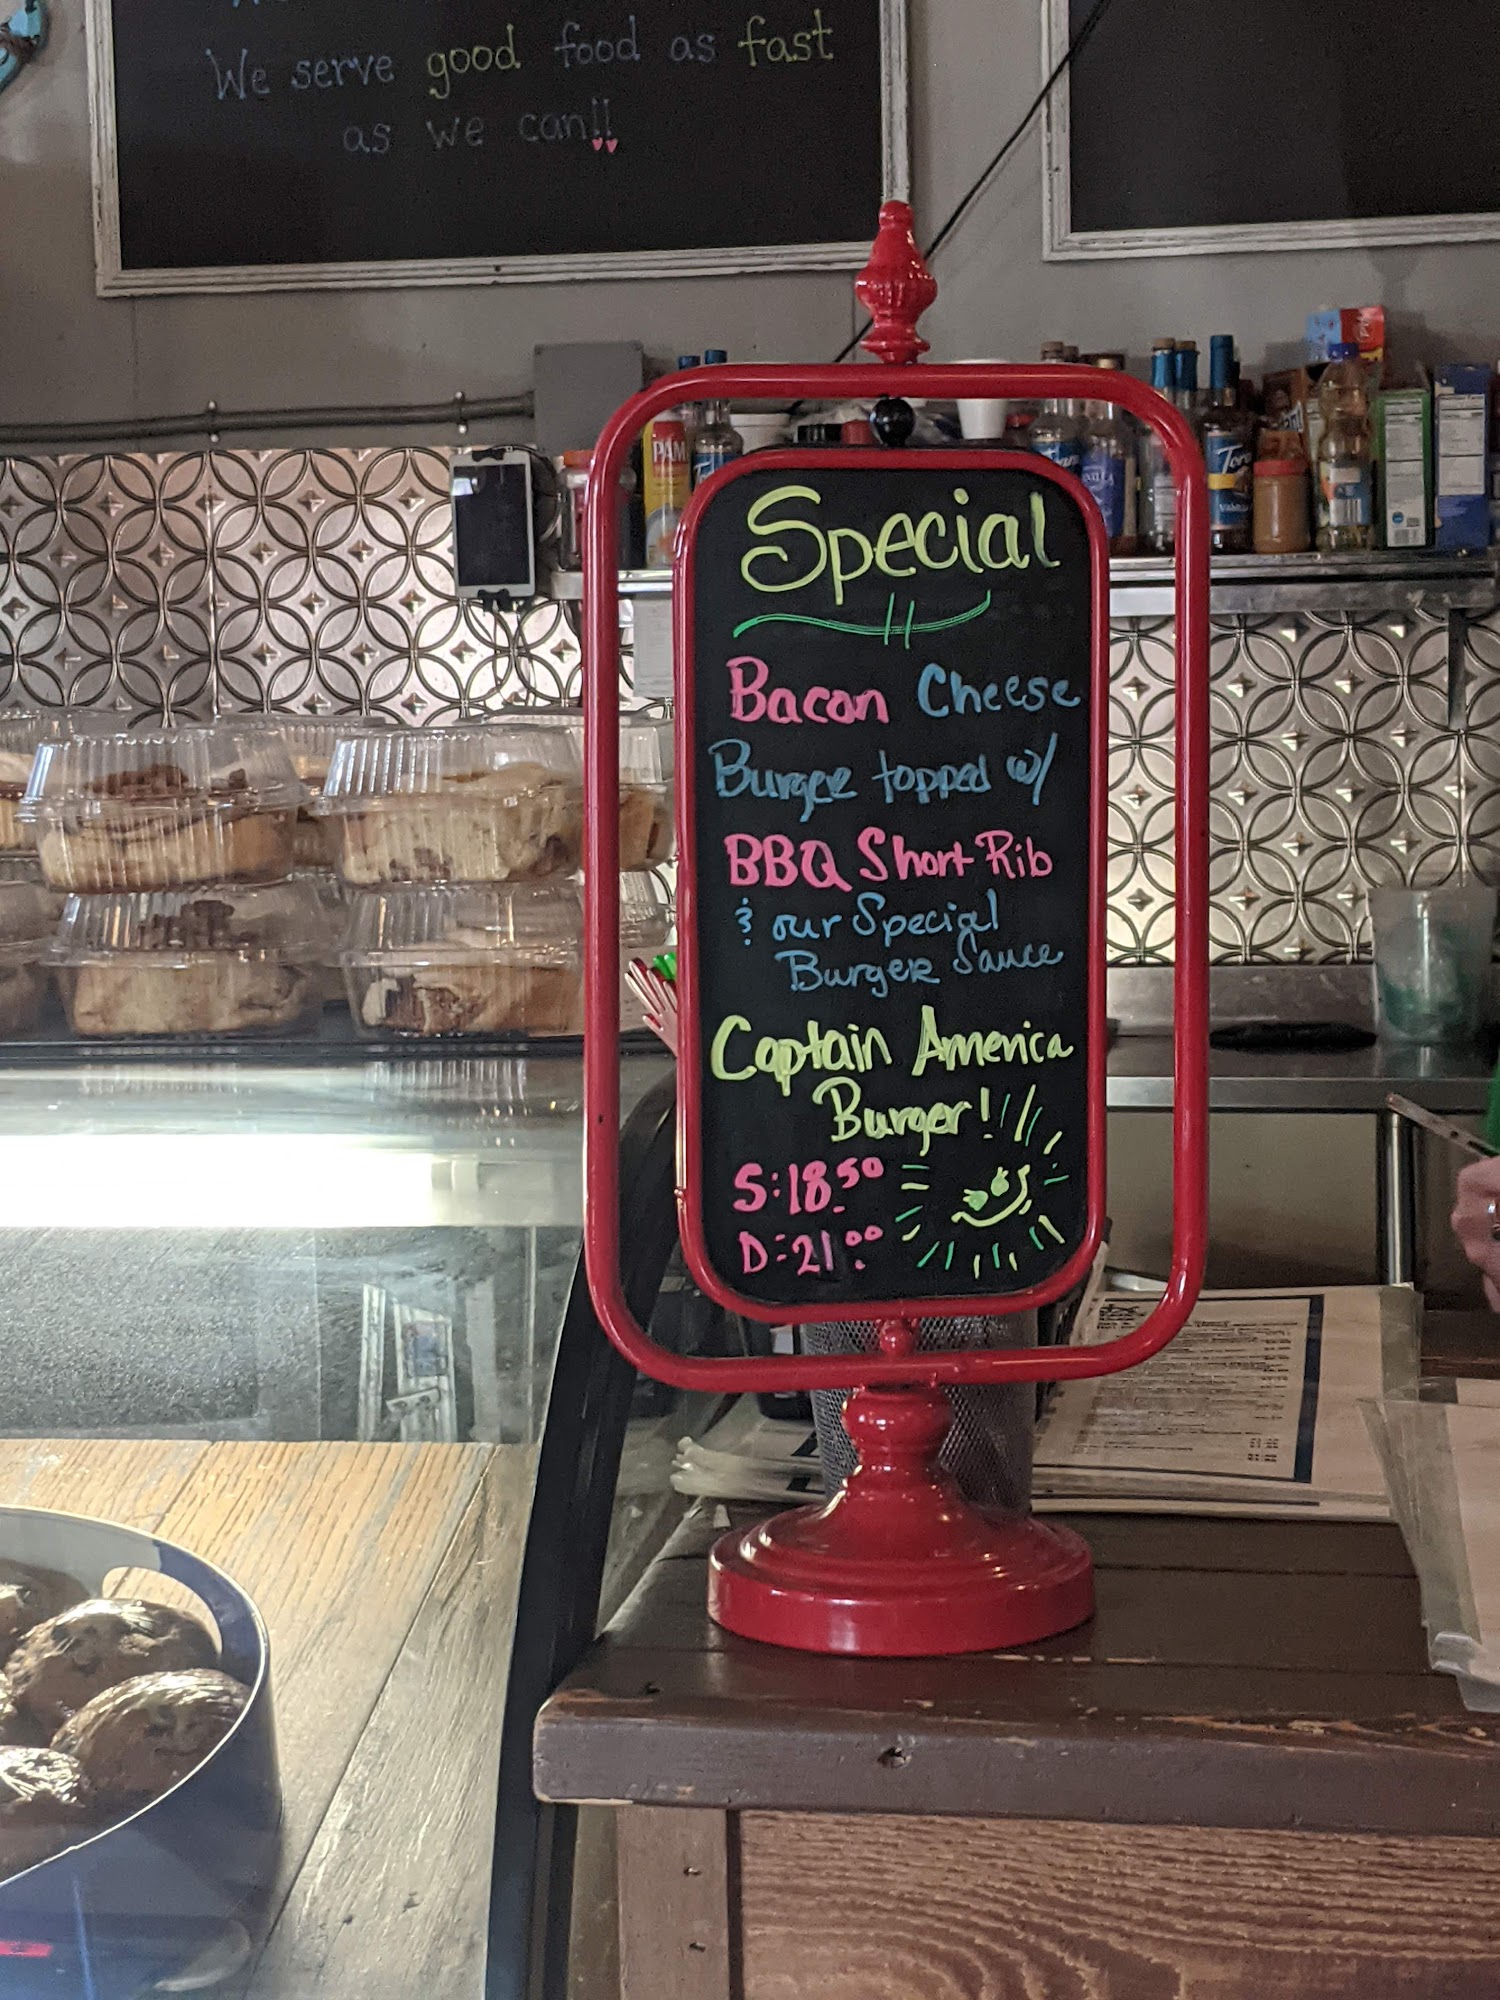 We serve good food as fast
as we can!!
PAM
Torani
VANILLA
Special
Bacon Cheese
Burger topped w/
BBQ Short Rib
& our Special
Burger Sauce
Captain America
Burger!
S: 18.50
D: 21.00